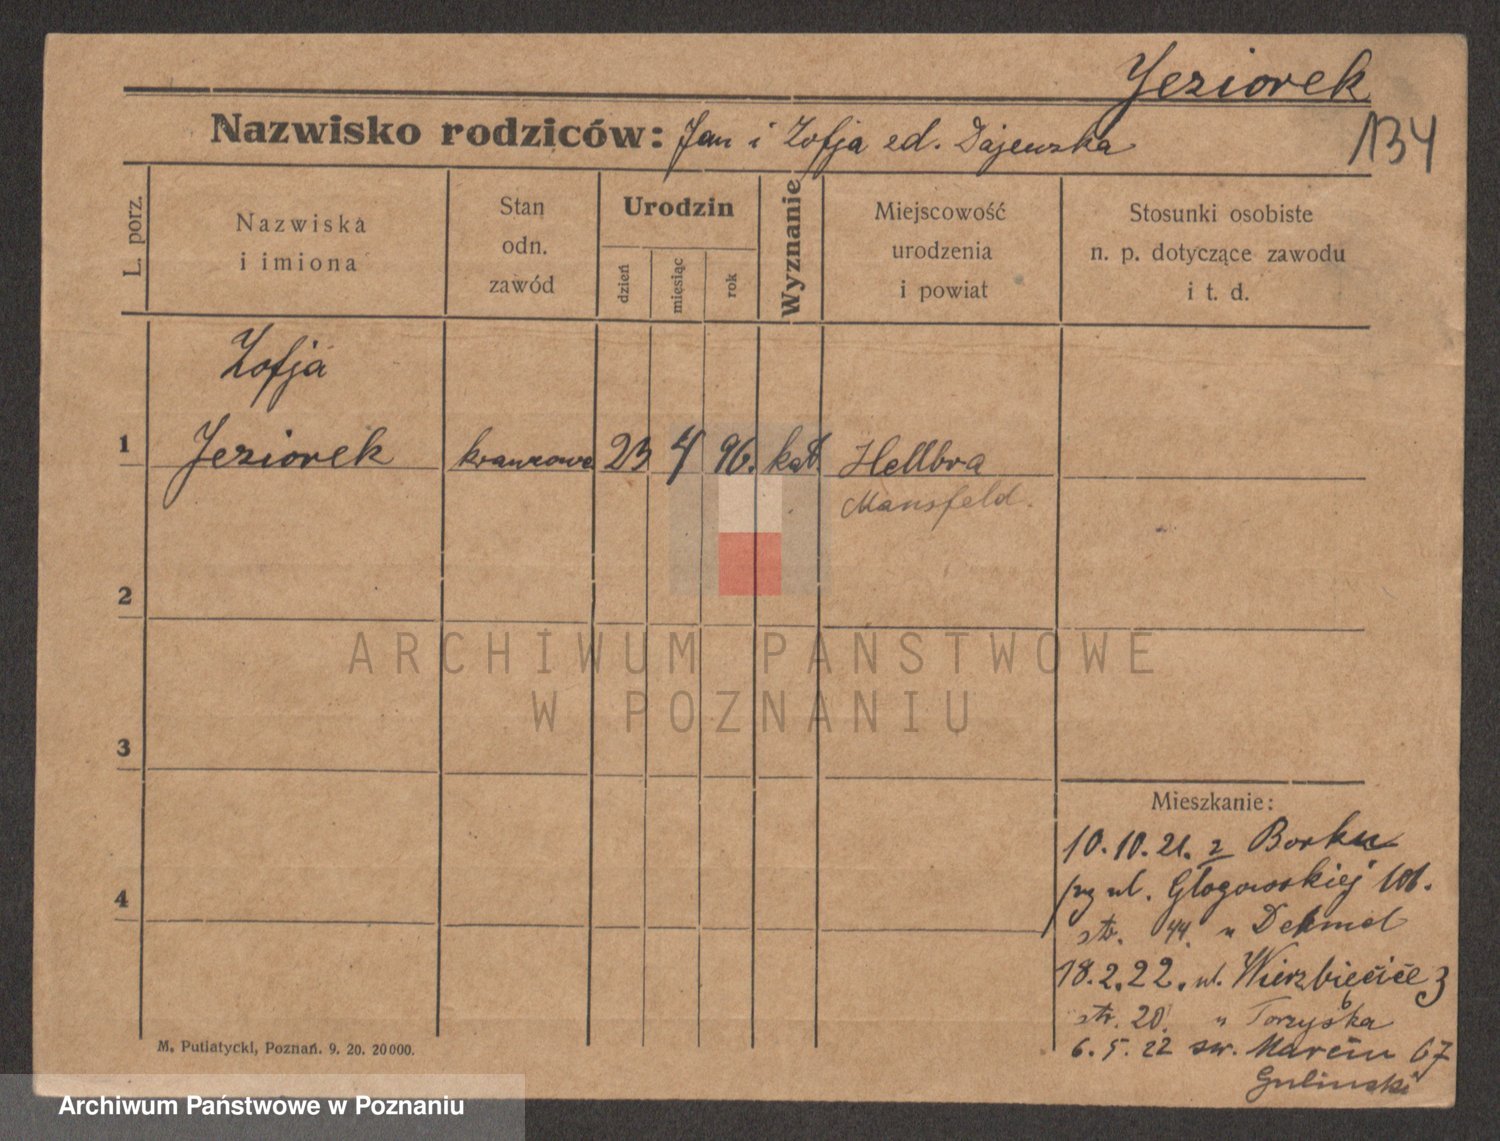 Jeziorek
134
Nazwisko rodziców: Jan i Zofja ed. Dajewska
L. porz.
Nazwiska
i imiona
Stan
odn.
zawód
Urodzin
dzień
miesiąc
rok
Wyznanie
Miejscowość
urodzenia
i powiat
Stosunki osobiste
n. p. dotyczące zawodu
i t. d.
Zofja
1 Jeziorek krawcowa 23 4 96. kat. Hellbra
Mansfeld.
2
3
4
ARCHIWUM PAŃSTWOWE
W POZNANIU
Mieszkanie:
10.10.21. z Borku
ul. Głogowskiej 101.
str. 44. u Dehmel
18.2.22. ul. Wierzbięcice 3
str. 20. u
6.5.22 św. Marcin 67
Gulinski
M. Putiatycki, Poznań. 9. 20. 20000.
Archiwum Państwowe w Poznaniu